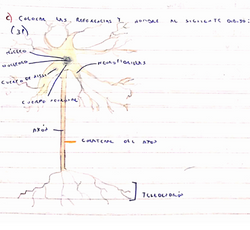 c) COLOCAR LAS REFERENCIAS Y NOMBRE AL SIGUIENTE DIBUJO:
(3P)
NÚCLEO
NUCLEOLO
NEUROFIBRILLAS
CUERPO DE NISSL
CUERPO NEURONAL
AXÓN
COLATERAL DEL AXÓN
TELODENDRÓN